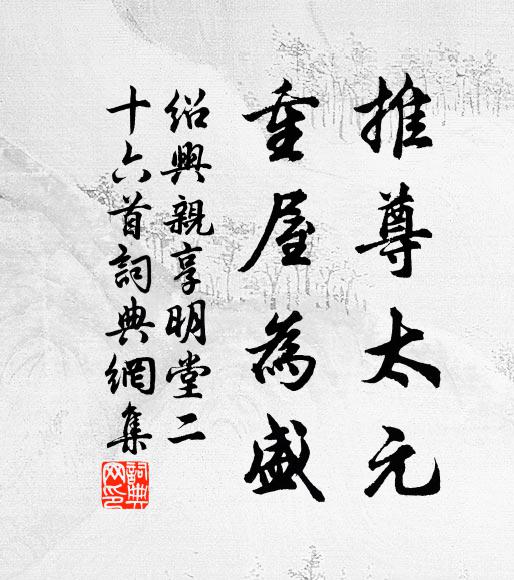 推尊太元
重屋為盛
紹興親享明堂二
十六首詞典網集
詞典
网印